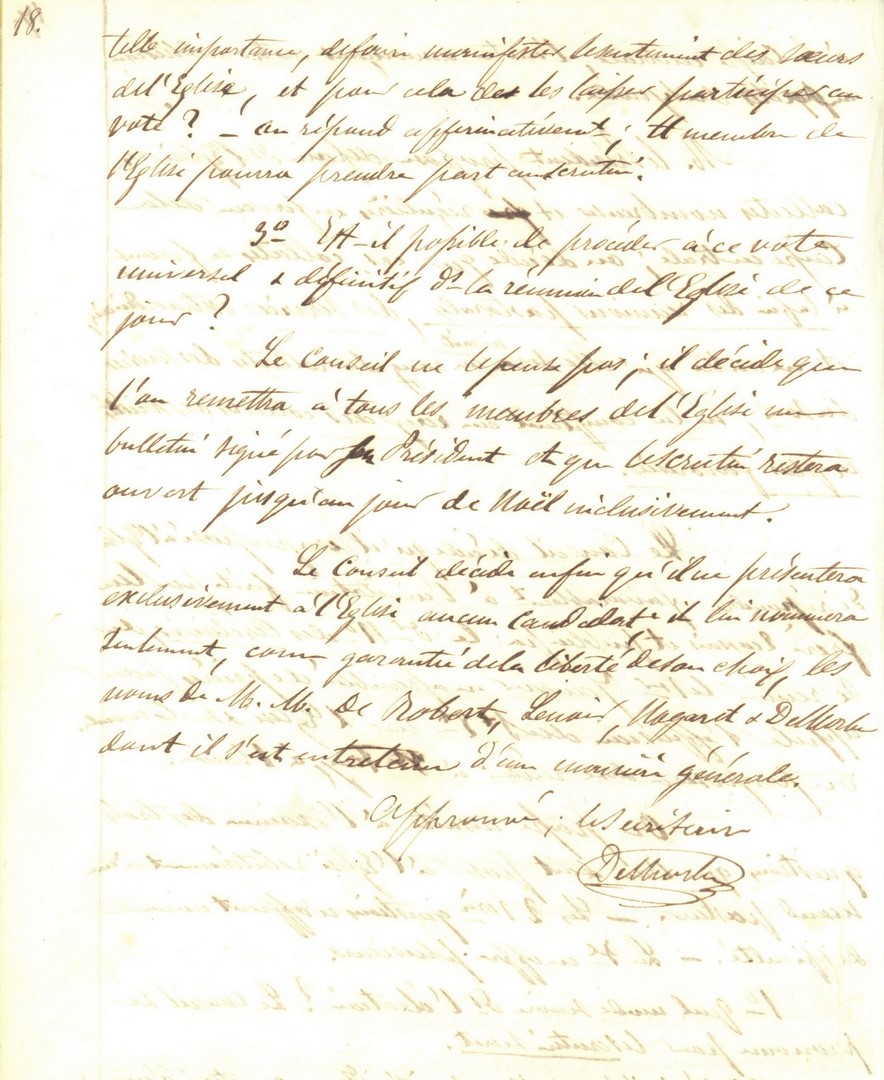 18.
telle importance, de faire manifester le sentiment des sœurs
de l'Eglise, et pour cela de les laisser participer au
vote ? — on répond affirmativement ; tt membre de
l'Eglise pourra prendre part au scrutin.
3º Est-il possible de procéder à ce vote
universel & définitif ds la réunion de l'Eglise de ce
jour ?
Le Conseil ne le pense pas ; il décide que
l'on remettra à tous les membres de l'Eglise un
bulletin signé par Président et que le scrutin restera
ouvert jusqu'au jour de Noël inclusivement.
Le Conseil décide enfin qu'il ne présentera
exclusivement à l'Eglise aucun candidat ; il lui nommera
seulement, comme garantie de la liberté de son choix, les
noms de M. M. de Robert, Lenoir, Nogaret &
dont il s'est entretenu d'une manière générale.
Approuvé ; le secrétaire